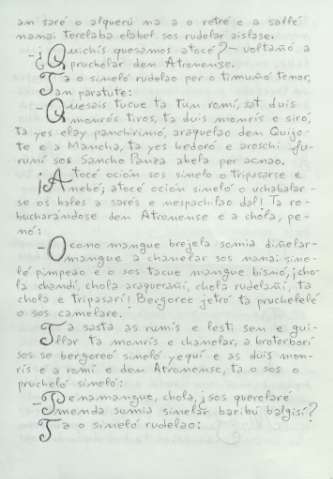 am saré o alquerú ma a o retré e a saffé
nama: torelaba elabel sos rudelar aislase.
-¿Quichís quesamos atocé?- voltañó a
pruchelar dem Atronense.
Ta o simeló rudelao per o timuñó tenor,
am paratute:
-Quesais tucue ta Tun romí, sat duis
monrós tiros, ta duis monrís e siró;
ta yes elay panchirimó, araquelao dem Quijo-
te e a Mancha, ta yes bedoré e aroschi fu-
rumí sos Sancho Panza abela per acnao.
¡Atocé oción sos simelo o Tripasarse e
nebó; atocé oción simeló o uchabalar-
se os bales a sarés e mespachilao dal! Ta re-
bucharándose dem Atronense e a chola, pe-
nó:
-Ocomo mangue brejela somia dinelar-
mangue a chanelar sos nanai sime-
ló pimpeao e o sos tacue mangue bismó, ¡cho-
la chandí, chola araquerañí, chola rudelañí, ta
chola e Tripasarí! Bergoree jetró ta pruchelelé
o sos camelare.
Ta sasta as rumis e lesti sen e gui-
llar ta monrís e chanelar, a broterborí
sos se bergoreó simeló yequí e as duis mon-
rís e a romí e dem Atronense, ta o sos o
prucheló simeló:
-Penamangue, chola, ¿sos querelaré
menda sumia simelar baribú balgisí?
Ta o simeló rudelao: